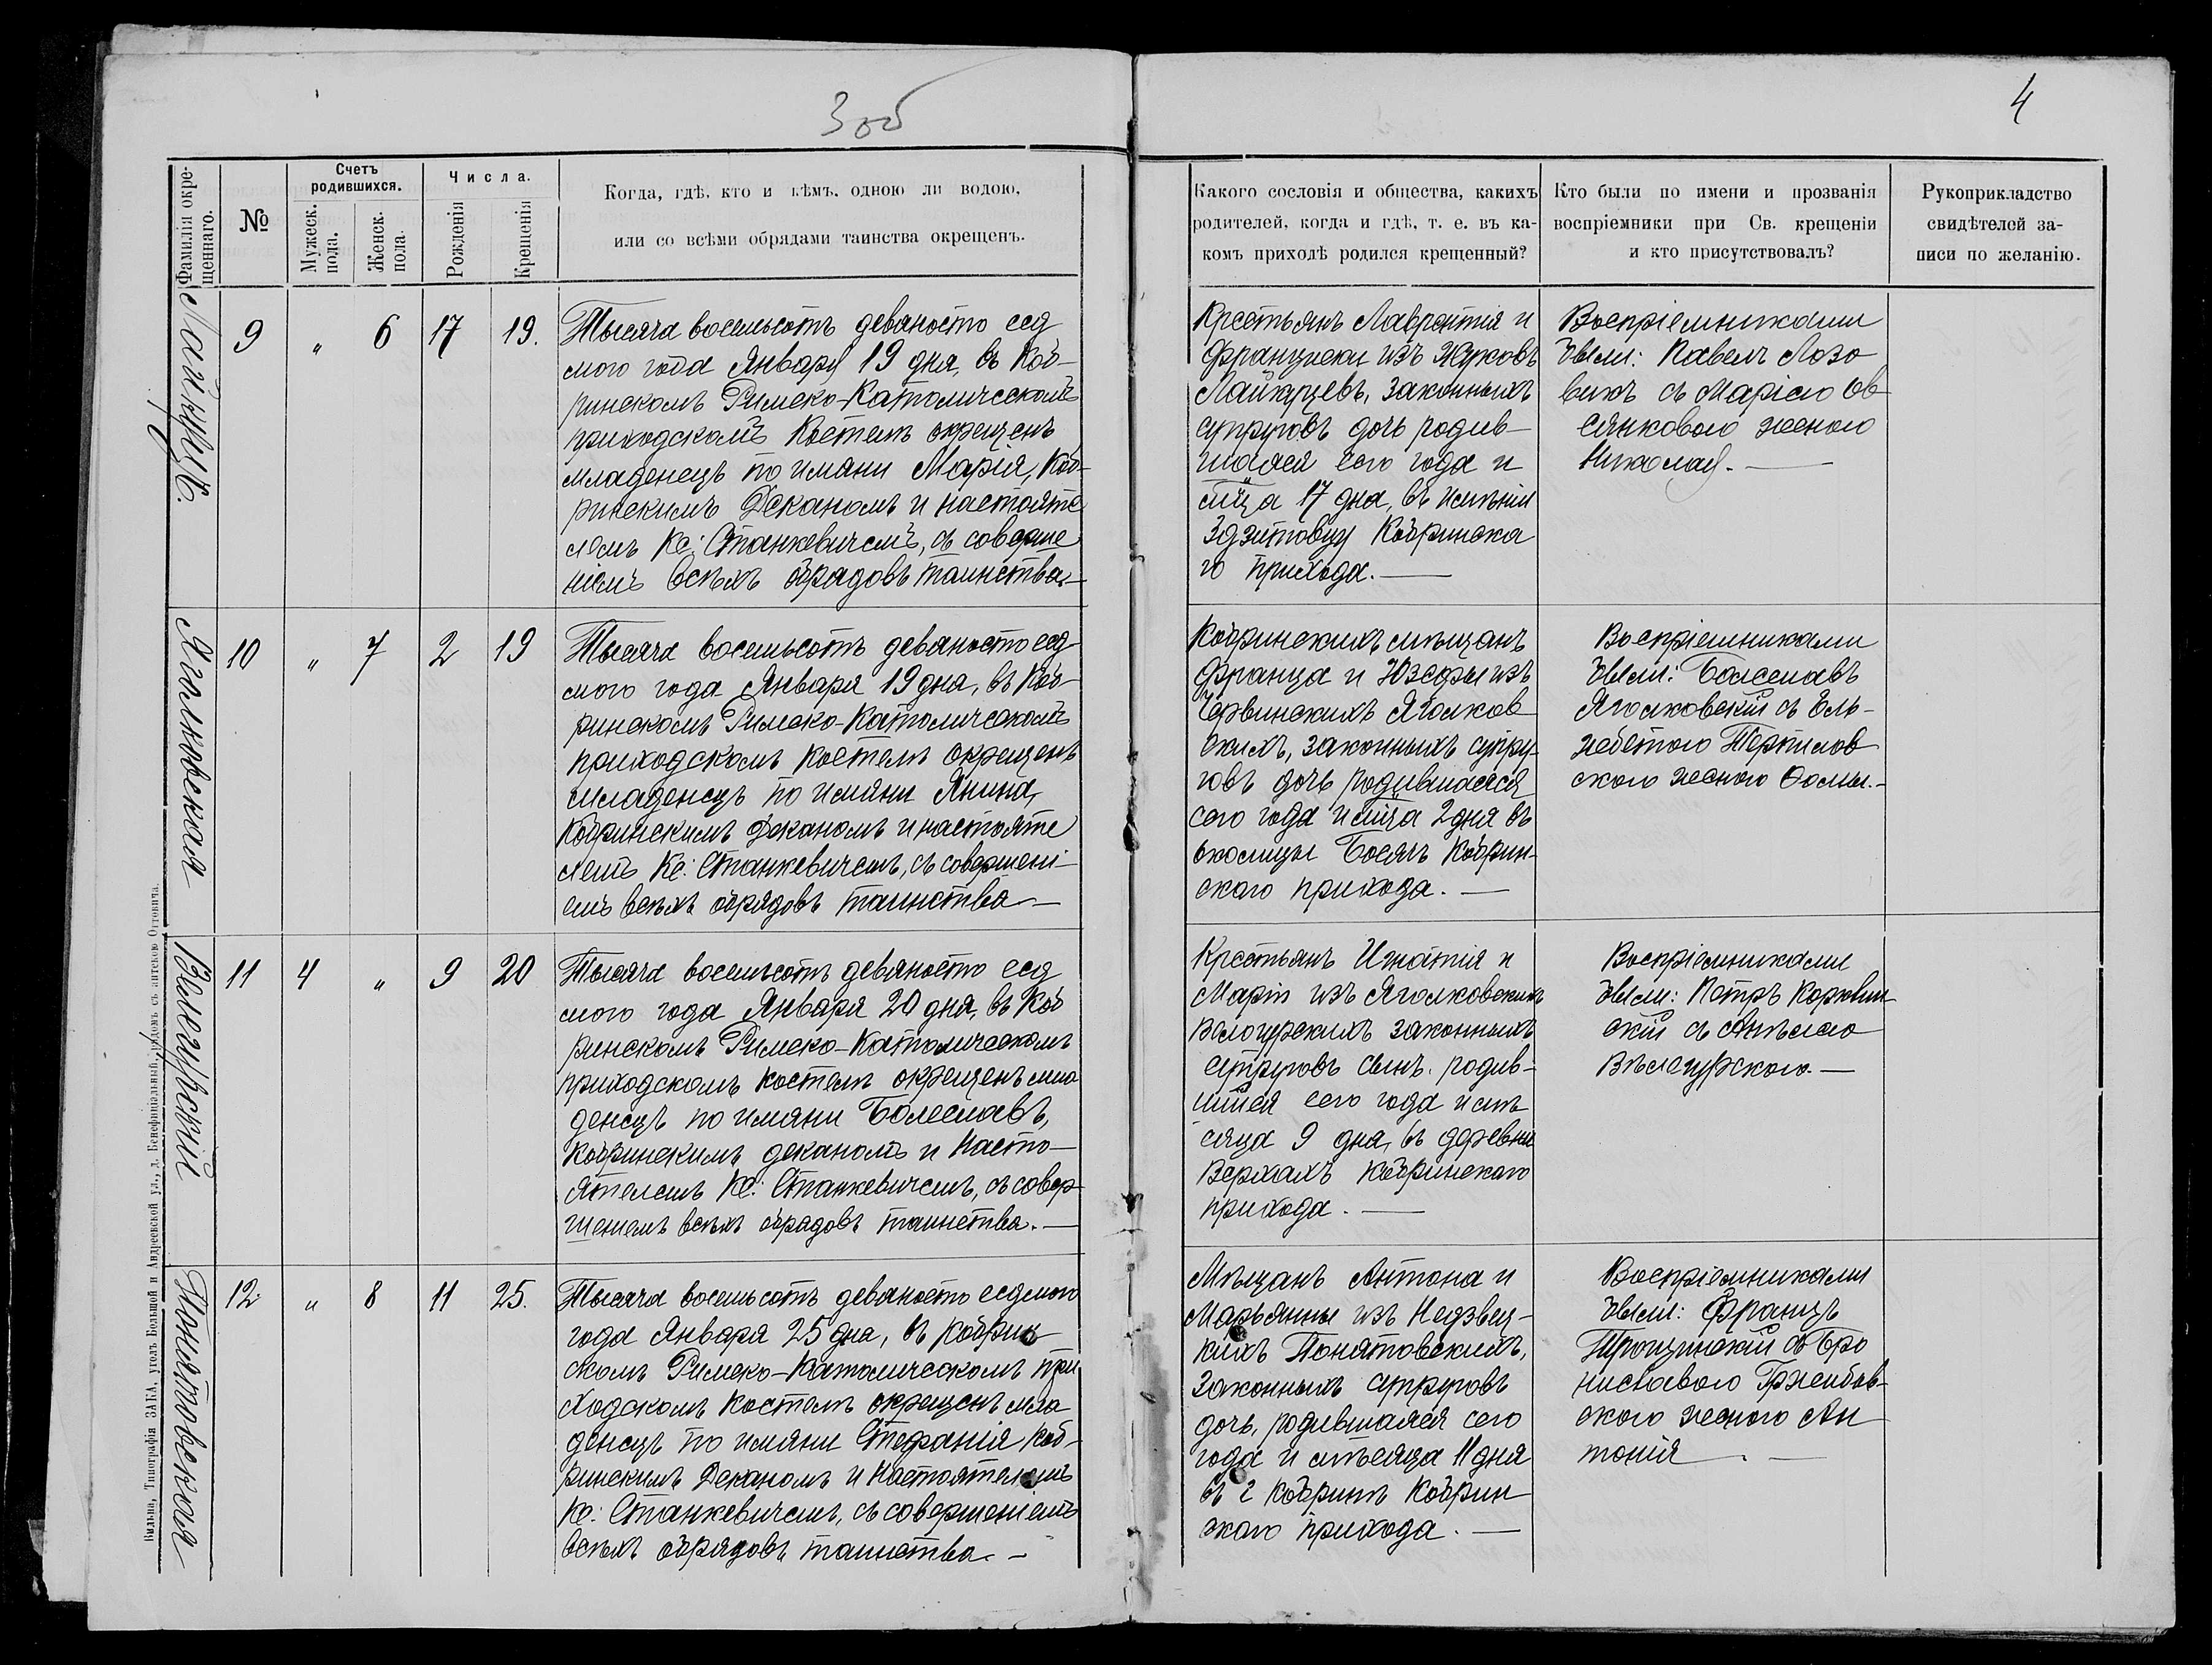 3 об
4
Фамилія окре-
щеннаго.
№
Счетъ
родившихся.
Мужеск.
пола.
Женск.
пола.
Числа.
Рожденія
Крещенія
Когда, гдѣ, кто и кѣмъ, одною ли водою,
или со всѣми обрядами таинства окрещенъ.
Какого сословія и общества, какихъ
родителей, когда и гдѣ, т. е. въ ка-
комъ приходѣ родился крещенный?
Кто были по имени и прозванія
воспріемники при Св. крещеніи
и кто присутствовалъ?
Рукоприкладство
свидѣтелей за-
писи по желанію.
9 " 6 17 19.
Тысяча восемьсотъ девяносто сед
мого года Января 19 дня, въ Коб-
ринскомъ Римско-Католическомъ
приходскомъ Костелѣ окрещенъ
младенецъ по имяни Марія, Коб-
ринскимъ Деканомъ и настояте
лемъ Кс: Станкевичемъ, съ соверше
ніемъ всѣхъ обрядовъ таинства.—
Крестьянъ Лаврентія и
Франциски изъ Жуковъ
законныхъ
супруговъ дочь родив-
шаяся сего года и
мца 17 дня, въ имѣніи
Здзитовцу Кобринска
го прихода.—
Воспріемниками
были: Павелъ Лозо
викъ съ Маріею Ов
сянковою женою
Николая.—
Яголковская
10 " 7 2 19
Тысяча восемьсотъ девяносто сед
мого года Января 19 дня, въ Коб-
ринскомъ Римско-Католическомъ
приходскомъ костелѣ окрещенъ
младенецъ по имяни Янина,
Кобринскимъ Деканомъ и настояте
лемъ Кс: Станкевичемъ, съ совершені-
емъ всѣхъ обрядовъ таинства.—
Кобринскихъ мѣщанъ
Франца и Юзефы изъ
Червинскихъ Яголков
скихъ, законныхъ супру-
говъ дочь родившаяся
сего года и мца 2 дня въ
околицы Босячъ Кобрин-
скаго прихода.—
Воспріемниками
были: Болеславъ
Яголковскій съ Ель-
жбетою
скою женою Фомы.-
11 4 " 9 20
Тысяча восемьсотъ девяносто сед
мого года Января 20 дня, въ Коб
ринскомъ Римско-Католическомъ
приходскомъ костелѣ окрещенъ мла
денецъ по имяни Болеславъ,
Кобринскимъ деканомъ и насто-
ятелемъ Кс: Станкевичемъ, съ совер-
шенемъ всѣхъ обрядовъ таинства.—
Крестьянъ Игнатія и
Маріи изъ Яголковскихъ
законныхъ
супруговъ сынъ, родив-
шійся сего года и мѣ
сяца 9 дня, въ деревни
Верхахъ Кобринскаго
прихода.—
Воспріемниками
были: Петръ
скій съ Анелею
12. " 8 11 25.
Тысяча восемьсотъ девяносто седмого
года Января 25 дня, въ Кобрин
скомъ Римско-Католическомъ при
ходскомъ костелѣ окрещенъ мла
денецъ по имяни Стефанія Коб-
ринскимъ Деканомъ и Настоятелемъ
Кс: Станкевичемъ, съ совершеніемъ
всѣхъ обрядовъ таинства.-
Понятовская
Мѣщанъ Антона и
Марьянны изъ Недзвец-
кихъ Понятовскихъ,
законныхъ супруговъ
дочь, родившаяся сего
года и мѣсяца 11 дня
въ г Кобринѣ Кобрин
скаго прихода.—
Воспріемниками
были: Францъ
съ Бро
ниславою Гржибов-
скою женою Ан
тонія—
Вильна, Типографія ЗАКА, уголъ Большой и Андреевской ул., д. Бенефиціальный, рядомъ съ аптекою Отовича.